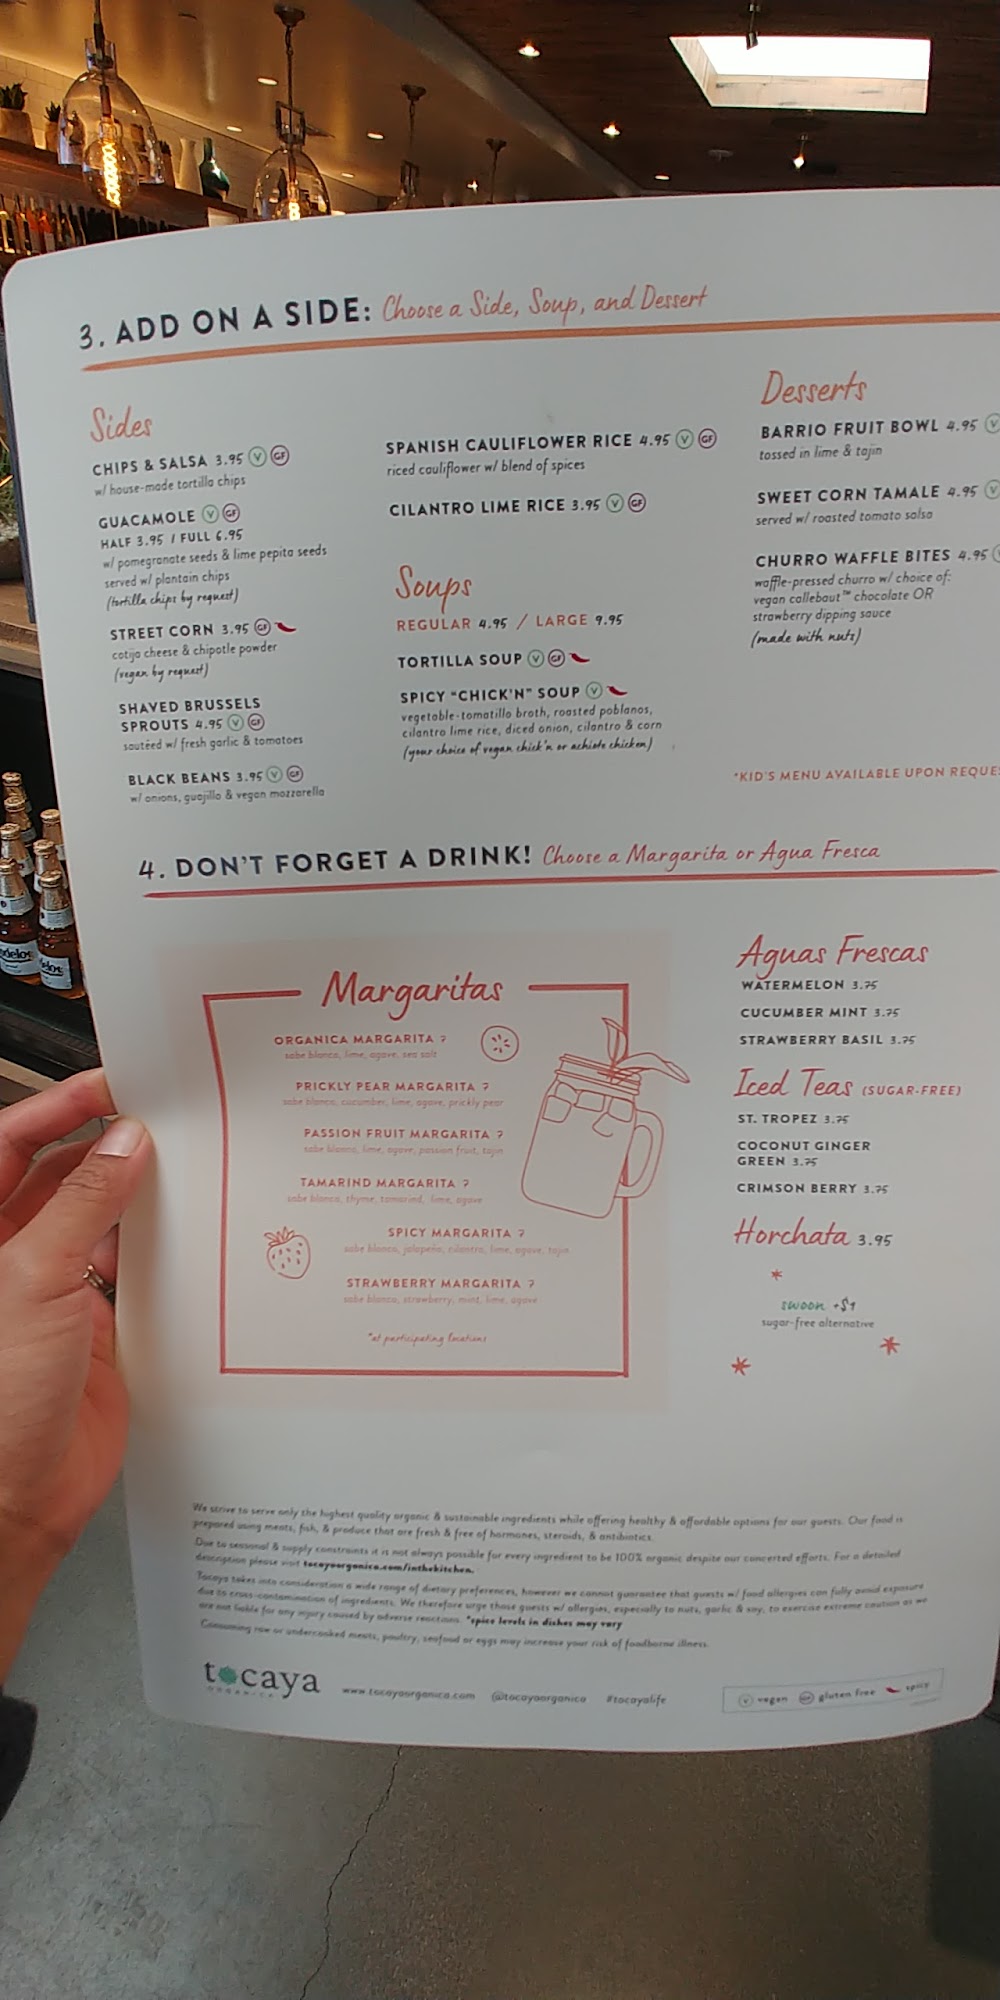 3. ADD ON A SIDE: Choose a Side, Soup, and Dessert
Sides
CHIPS & SALSA 3.95 V GF
w/ house-made tortilla chips
GUACAMOLE V GF
HALF 3.95 / FULL 6.95
w/ pomegranate seeds & lime pepita seeds
served w/ plantain chips
(tortilla chips by request)
STREET CORN 3.95 GF
cotija cheese & chipotle powder
(vegan by request)
SHAVED BRUSSELS
SPROUTS 4.95 V GF
sautéed w/ fresh garlic & tomatoes
BLACK BEANS 3.95 V GF
w/ onions, guajillo & vegan mozzarella
SPANISH CAULIFLOWER RICE 4.95 V GF
riced cauliflower w/ blend of spices
CILANTRO LIME RICE 3.95 V GF
Soups
REGULAR 4.95 / LARGE 9.95
TORTILLA SOUP V GF
SPICY "CHICK'N" SOUP V
vegetable-tomatillo broth, roasted poblanos,
cilantro lime rice, diced onion, cilantro & corn
(your choice of vegan chick'n or achiote chicken)
Desserts
BARRIO FRUIT BOWL 4.95 V
tossed in lime & tajin
SWEET CORN TAMALE 4.95 V
served w/ roasted tomato salsa
CHURRO WAFFLE BITES 4.95
waffle-pressed churro w/ choice of:
vegan callebaut™ chocolate OR
strawberry dipping sauce
(made with nuts)
*KID'S MENU AVAILABLE UPON REQUES
4. DON'T FORGET A DRINK! Choose a Margarita or Agua Fresca
Margaritas
ORGANICA MARGARITA 7
sabe blanco, lime, agave, sea salt
PRICKLY PEAR MARGARITA 7
sabe blanco, cucumber, lime, agave, prickly pear
PASSION FRUIT MARGARITA 7
sabe blanco, lime, agave, passion fruit, tajin
TAMARIND MARGARITA 7
sabe blanco, thyme, tamarind, lime, agave
SPICY MARGARITA 7
sabe blanco, jalapeño, cilantro, lime, agave, tajin
STRAWBERRY MARGARITA 7
sabe blanco, strawberry, mint, lime, agave
*at participating locations
Aguas Frescas
WATERMELON 3.75
CUCUMBER MINT 3.75
STRAWBERRY BASIL 3.75
Iced Teas (SUGAR-FREE)
ST. TROPEZ 3.75
COCONUT GINGER
GREEN 3.75
CRIMSON BERRY 3.75
Horchata 3.95
swoon +$1
sugar-free alternative
We strive to serve only the highest quality organic & sustainable ingredients while offering healthy & affordable options for our guests. Our food is
prepared using meats, fish, & produce that are fresh & free of hormones, steroids, & antibiotics.
Due to seasonal & supply constraints it is not always possible for every ingredient to be 100% organic despite our concerted efforts. For a detailed
description please visit tocayaorganica.com/inthekitchen.
Tocaya takes into consideration a wide range of dietary preferences, however we cannot guarantee that guests w/ food allergies can fully avoid exposure
due to cross-contamination of ingredients. We therefore urge those guests w/ allergies, especially to nuts, garlic & soy, to exercise extreme caution as we
are not liable for any injury caused by adverse reactions. *spice levels in dishes may vary
Consuming raw or undercooked meats, poultry, seafood or eggs may increase your risk of foodborne illness.
tocaya
ORGANICA
www.tocayaorganica.com @tocayaorganica #tocayalife
V vegan GF gluten free spicy